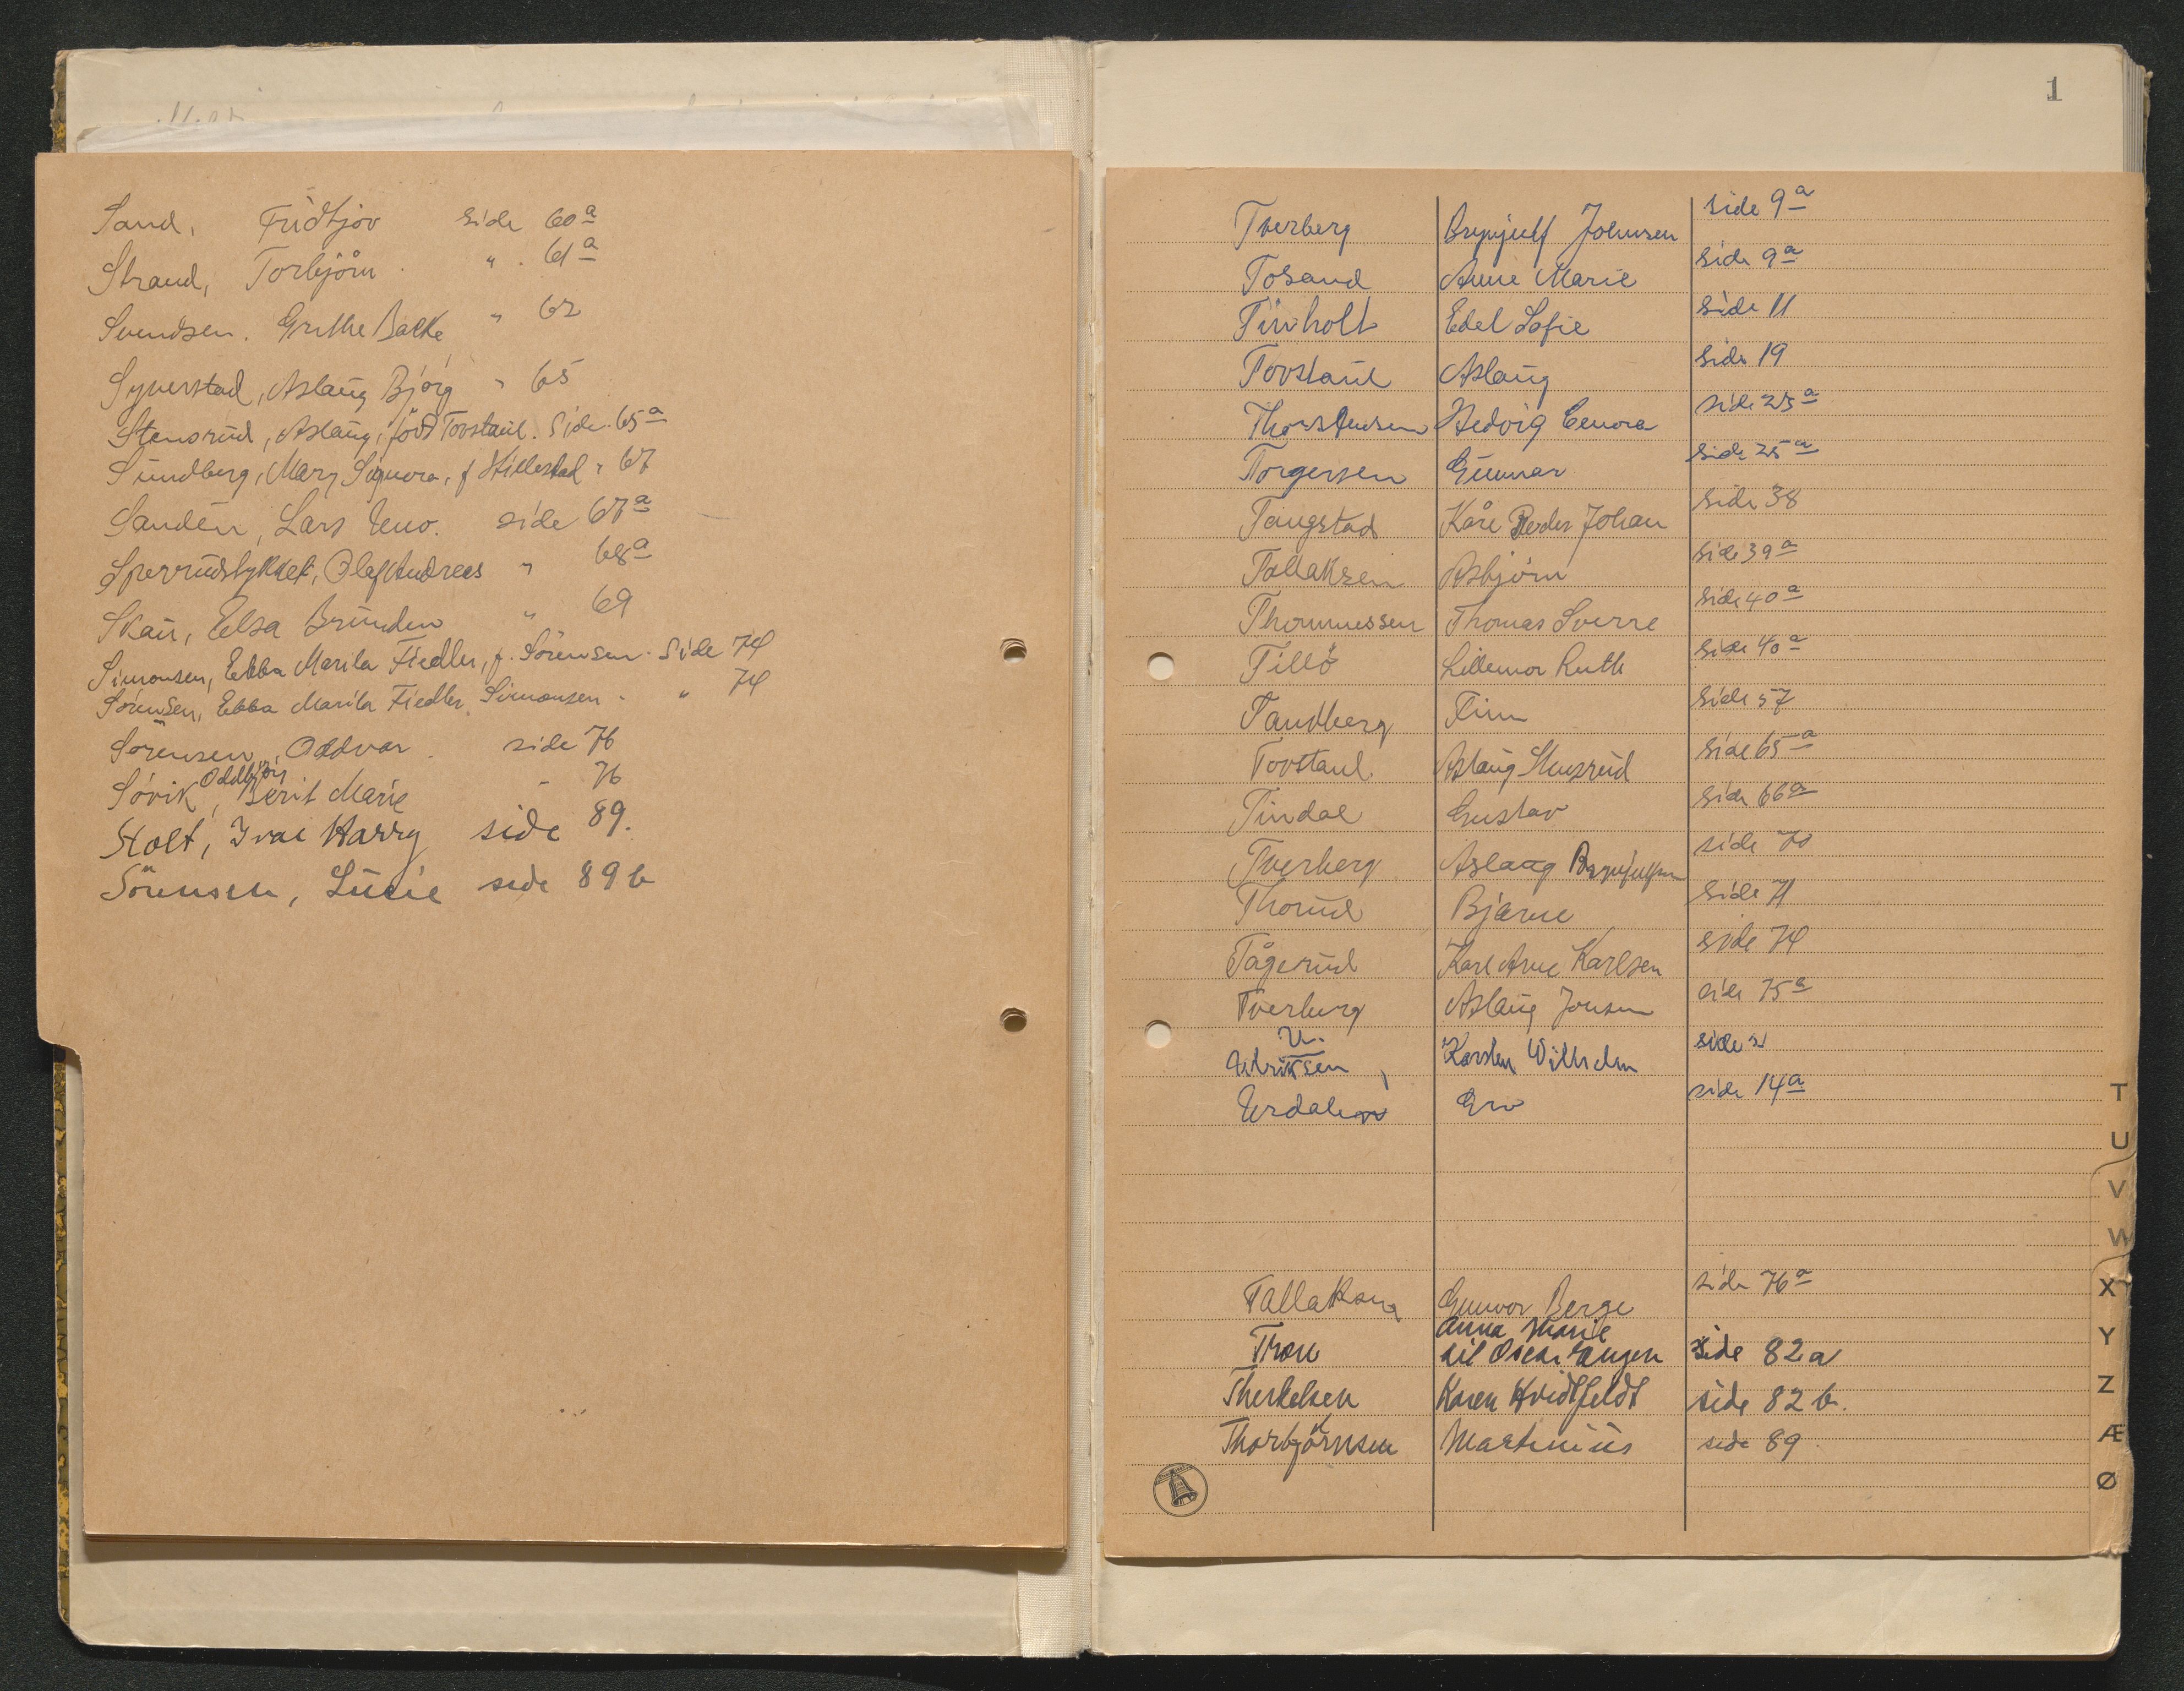 Sand, Fridtjov side 60a
Strand, Torbjörn. ". 61a
Svendsen. Grethe Bakke " 62
Syverstad, Aslaug Bjørg " 65
Stensrud, Aslaug, født Tovstaul. Side 65a
Sundberg, Mary Signora, f Hillestad " 67
Sandén, Lars Uno. side 67a
Sperrudstykket, Olaf Andreas " 68a
Skau, Elsa Brunden " 69
Simonsen, Ebba Marila Fiedler, f. Sörensen. Side 74
Sörensen, Ebba Marila Fiedler Simonsen. " 74
Sörensen, Oddvar side 76
Oddbjörg
Sövik, Berit Marie - 76
Stolt, Ivar Harry side 89.
Sörensen, Lucie side 89 b
1
Tverberg Brynjulf Johnsen side 9a
Tosand Anne Marie side 9a
Tinholt Edel Sofie side 11
Tovstaul Aslaug side 19
Thorstensen Hedvig Lenora side 23a
Torgersen Gunnar side 25a
Tangstad Kåre Peder Johan side 38
Tallaksen Asbjörn side 39a
Thommessen Thomas Sverre side 40a
Tillö Lillemor Ruth side 40a
Tandberg Finn side 57
Tovstaul Aslaug Stensrud side 65a
Tindal Gustav side 66a
Tverberg Aslaug Brynjulfsen side 70
Thorud Bjarne side 71
Tågerud Karl Arne Karlsen side 74
Tverberg Aslaug Jonsen side 75a
U.
Ulriksen, Karsten Wilhelm side 2
Urdalen Gro side 14a
Tallaksen Gunvor Berge side 76a
Anna Marie
Tron til Oscar Eugen side 82a
Therkelsen Karen Hvidtfeldt side 82 b.
Thorbjørnsen Martinius side 89
T
U
V
W
X
Y
Z
Æ
Ø